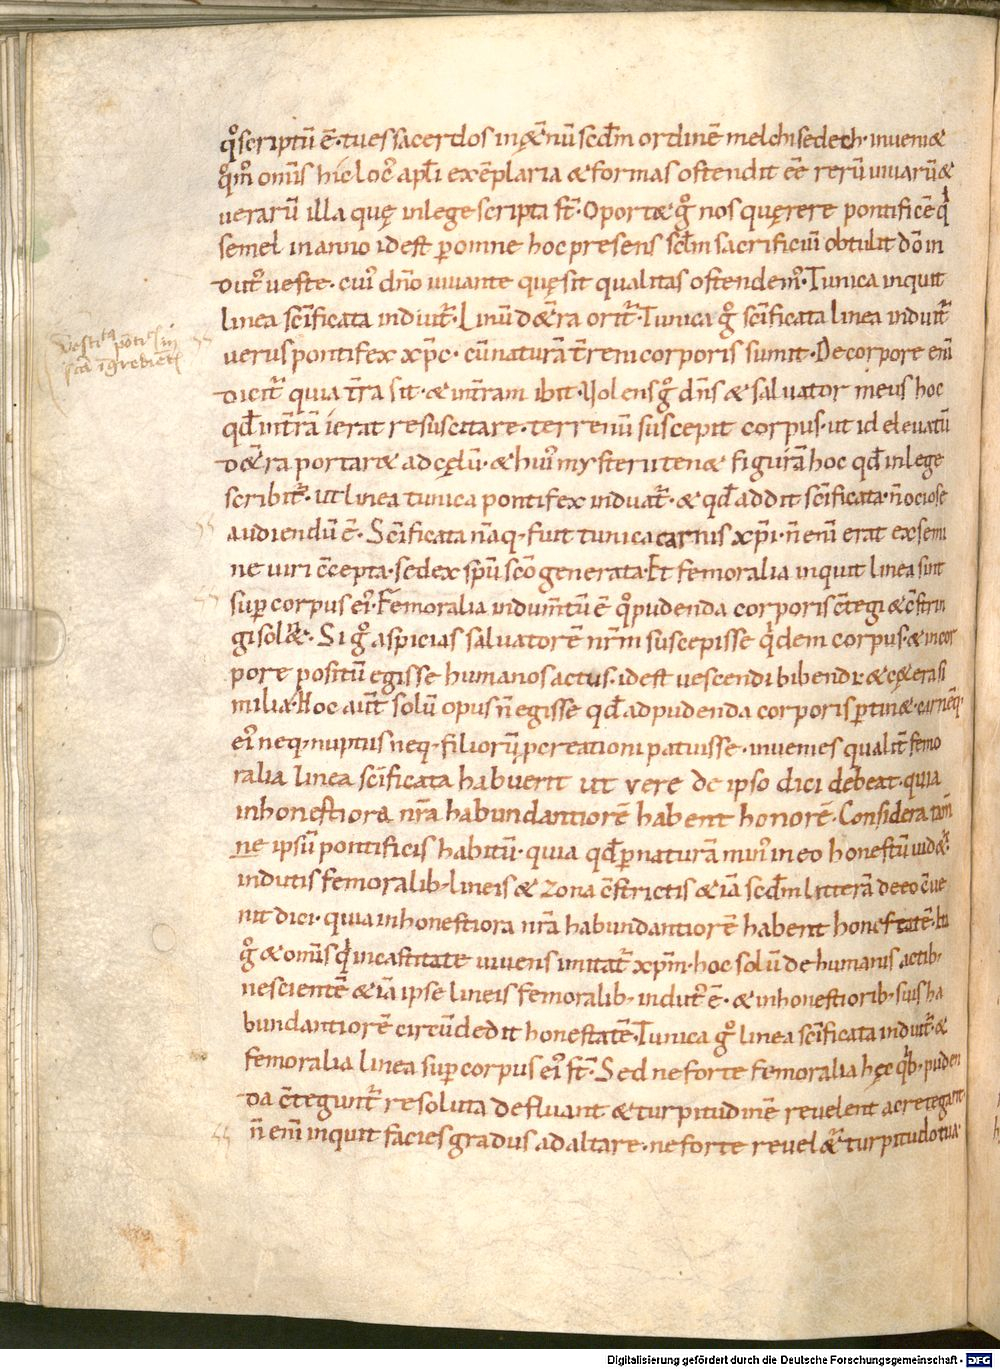 q̊scriptū ē· tu es sacerdos inęt̄nū scd̄m ordinē melchisedech· inueniet
q̊m̄ omīs hic locꝰ apl̄i exēplaria et formas ostendit eē rerū uiuarū et
uerarū illa quę inlege scripta st̄· Oportet g̊ nos quęrere pontificē q
semel inanno idest ꝑomne hoc presens scl̄m sacrificiū obtulit dō in
dutꝰ ueste· cuiꝰ dn̄o iuuante quęsit qualitas ostendemꝰ· Tunica inquit
linea scīficata induit̄· Linū detera orit̄· Tunica g̊ scīficata linea induit̄
ueruspontifex xp̄c· cū naturā t̄reni corporis sumit· Decorpore em̄
dicit̄ quia t̄ra sit· et int̄ram ibit· Uolens g̊ dn̄s et saluator meus hoc
qd̄ int̄rā ierat resuscitare· terrenū suscepit corpus· ut id eleuatū
detera portaret adcęlū· et huiꝰ mysterii tenet figurā hoc qd̄ inlege
scribit̄· ut linea tunica pontifex induat̄· et qd̄ addit scīficata· n̄ociose
audiendū ē· Scīficata nāq· fuit tunica carnis xp̄i· n̄ em̄ erat exsemi
ne uiri c̄cepta· sedex sp̄u scō generata· Et femoralia inquit linea sint
suꝑ corpus eiꝰ· Femoralia indumt̄ū ē q̊ pudenda corporis c̄tegi et c̄strin
gi solet̄· Si g̊ aspicias saluatorē nr̄m suscepisse qdem corpus· et incor
pore positū egisse humanos actus· idest uescendi bibendi· et cętera si
milia· Hoc aut̄ solū opus n̄ egisse qd̄ adpudenda corporis ꝑtinet· carnēq·
eiꝰ neq· nuptus neq· filiorū ꝓcreationi patuisse· inuenies qualit̄ femo
ralia linea scīficata habuerit ut vere de ipso dici debeat· quia
inhonestiora nr̄a habundantiorē habent honorē· Considera tam̄
ne ipsū pontificis habitū· quia qd̄ ꝑ naturā minꝰ in eo honestū uidet̄·
indutis femoralib· lineis et zona c̄strictis et iā scd̄m litterā deeo c̄ue
nit dici· quia inhonestiora nr̄a habundantiorē habent honestatē· hu
g̊ et omīs q incastitate uiuens imitat̄ xp̄m· hoc solū de humanis actib·
nescientē et iā ipse lineis femoralib· indutꝰ ē· et inhonestiorib· suis ha
bundantiorē circūdedit honestatē· Tunica g̊ linea scīficata induit̄· et
femoralia linea suꝑ corpus eiꝰ st̄· Sed ne forte femoralia hęc qb· puden
da c̄tegunt̄ resoluta defluant et turpitudinē reuelent ac retegant·
n̄ em̄ inquit facies gradus ad altare· ne forte reuelet̄ turpitudo tua·